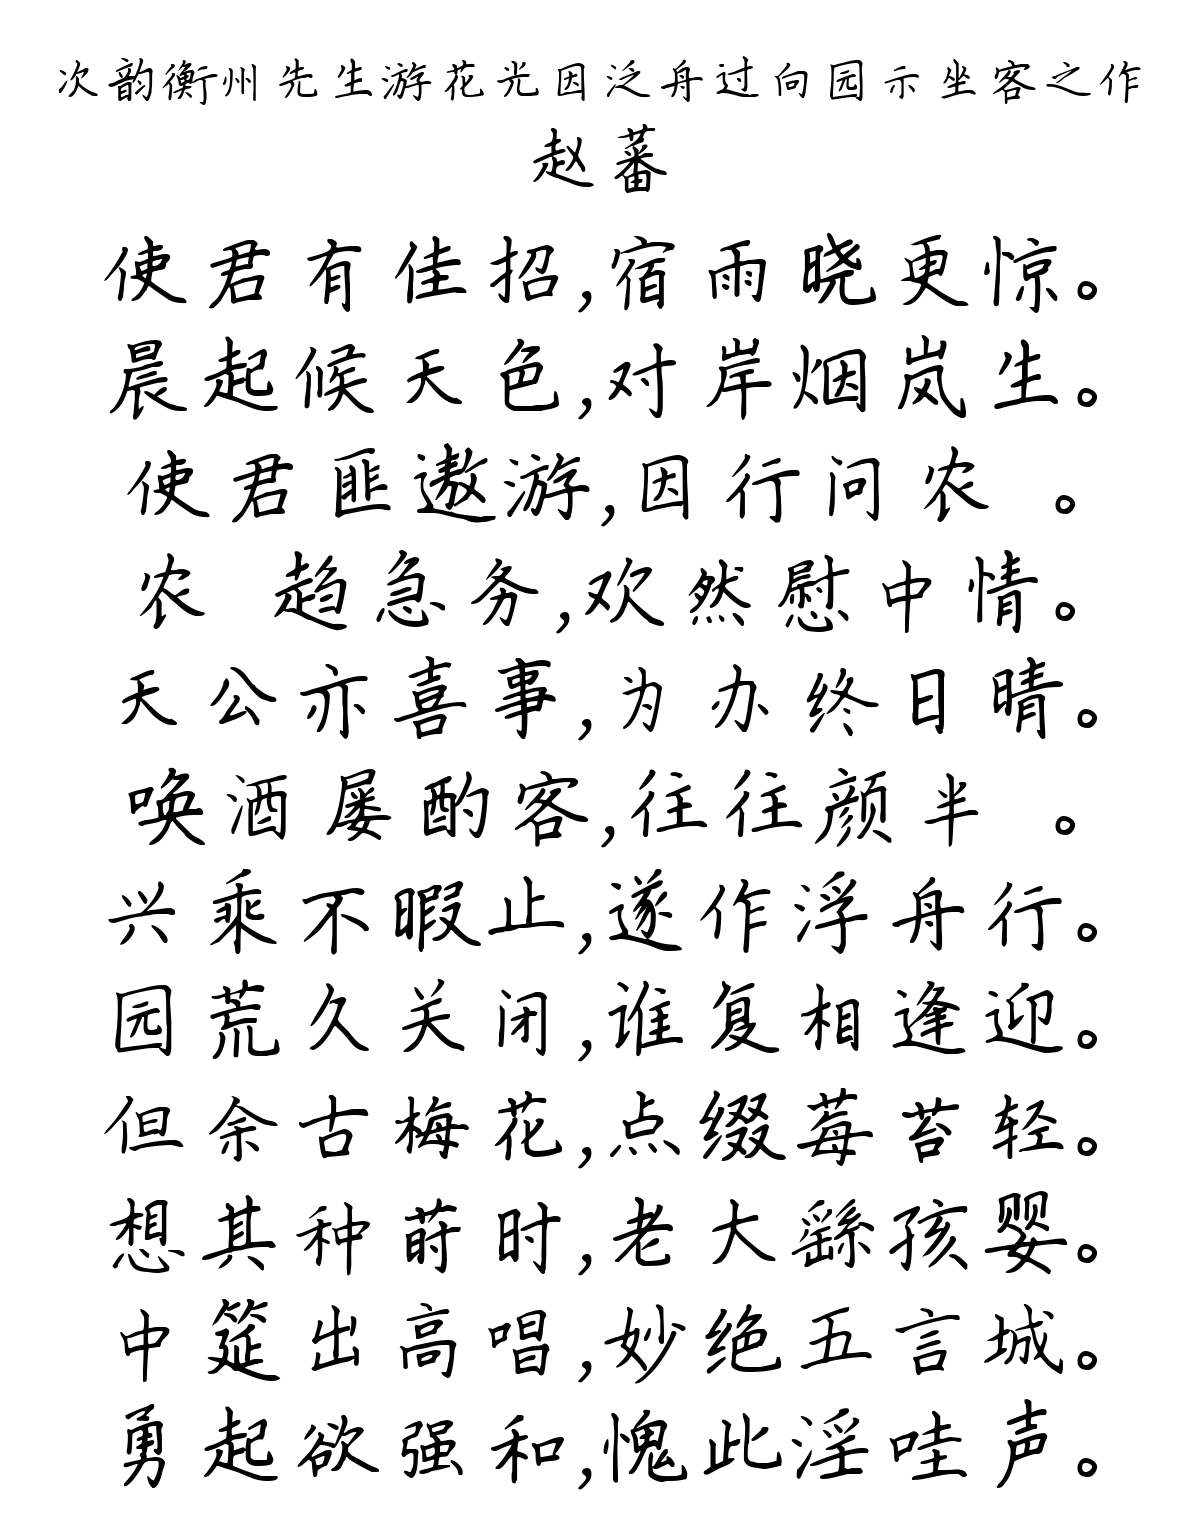 次韵衡州先生游花光因泛舟过向园示坐客之作
赵蕃
使君有佳招,宿雨晓更惊。
晨起候天色,对岸烟岚生。
使君匪遨游,因行问农 。
农 趋急务,欢然慰中情。
天公亦喜事,为办终日晴。
唤酒屡酌客,往往颜半 。
兴乘不暇止,遂作浮舟行。
园荒久关闭,谁复相逢迎。
但余古梅花,点缀莓苔轻。
想其种莳时,老大繇孩婴。
中筵出高唱,妙绝五言城。
勇起欲强和,愧此淫哇声。